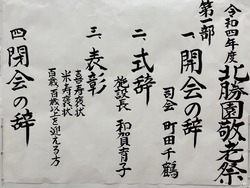 令和四年度
北勝園敬老祭
第一部
一、開会の辞
司会 町田千鶴
二、式辞
施設長 和賀育子
三、表彰
喜寿表状
米寿表状
百歳、百歳以上を迎える方
四、閉会の辞